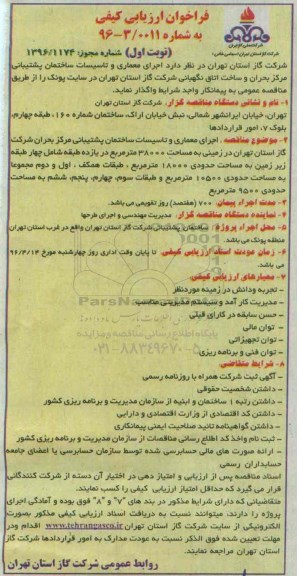 فراخوان ارزیابی کیفی
به شماره ۹۶-۳/۰۰۱۱
(نوبت اول) شماره مجوز: ۱۳۹۶/۱۱۷۴
شرکت گاز استان تهران در نظر دارد اجرای معماری و تاسیسات ساختمان پشتیبانی
مرکز بحران و ساخت اتاق نگهبانی شرکت گاز استان تهران در سایت پونک را از طریق
مناقصه عمومی به پیمانکار واجد شرایط واگذار نماید.
۱- نام و نشانی دستگاه مناقصه گزار: شرکت گاز استان تهران
تهران، خیابان ایرانشهر شمالی، نبش خیابان اراک، ساختمان شماره ۱۶۰، طبقه چهارم،
بلوک ۷، امور قراردادها
۲- موضوع مناقصه: اجرای معماری و تاسیسات ساختمان پشتیبانی مرکز بحران شرکت
گاز استان تهران در زمینی به مساحت ۳۸۰۰۰ مترمربع در یازده طبقه شامل چهار طبقه
زیر زمین به مساحت حدودی ۱۸۰۰۰ مترمربع، طبقات همکف، اول و دوم مجموعا
به مساحت حدودی ۱۰۵۰۰ مترمربع و طبقات سوم، چهارم، پنجم، ششم به مساحت
حدودی ۹۵۰۰ مترمربع
۳- مدت اجرای پیمان: ۷۰۰ (هفتصد) روز تقویمی می باشد.
۴- نماینده دستگاه مناقصه گزار: مدیریت مهندسی و اجرای طرحها
۵- محل اجراء پروژه: ساختمان پشتیبانی شرکت گاز استان تهران واقع در غرب استان تهران
منطقه پونک می باشد.
۶- زمان عودت اسناد ارزیابی کیفی: تا پایان وقت اداری روز چهارشنبه مورخ ۹۶/۴/۱۴
می باشد.
۷- معیارهای ارزیابی کیفی:
- تجربه ودانش در زمینه موردنظر
- مدیریت کار آمد و سیستم مدیریتی مناسب
- حسن سابقه در کارای قبلی
- توان مالی
- توان تجهیزاتی
- توان فنی و برنامه ریزی
۸- شرایط متقاضی:
- آگهی ثبت شرکت همراه با روزنامه رسمی
- داشتن شخصیت حقوقی
- داشتن رتبه ۱ ساختمان و ابنیه از سازمان مدیریت و برنامه ریزی کشور
- داشتن کد اقتصادی از وزارت اقتصادی و دارایی
- داشتن گواهینامه تائید صلاحیت ایمنی پیمانکاری
- ثبت نام واخذ کد اطلاع رسانی مناقصات از سازمان مدیریت و برنامه ریزی کشور
- ارائه صورت های مالی حسابرسی شده توسط سازمان حسابرسی یا اعضای جامعه
حسابداران رسمی
اسناد مناقصه پس از ارزیابی و امتیاز دهی در اختیار آن دسته از شرکت کنندگانی
قرار می گیرد که حداقل امتیاز ارزیابی کیفی را کسب نمایند.
متقاضیانی که دارای شرایط مذکور در بند های "۷" و "۸" فوق بوده و آمادگی اجرای
پروژه را دارند، میتوانند نسبت به دریافت اسناد ارزیابی کیفی مذکور بصورت
الکترونیکی از سایت شرکت گاز استان تهران www.tehrangasco.ir اقدام ودر
مهلت تعیین شده فوق الذکر نسبت به عودت مدارک به امور قراردادها شرکت گاز
استان تهران مراجعه نمایند.
روابط عمومی شرکت گاز استان تهران